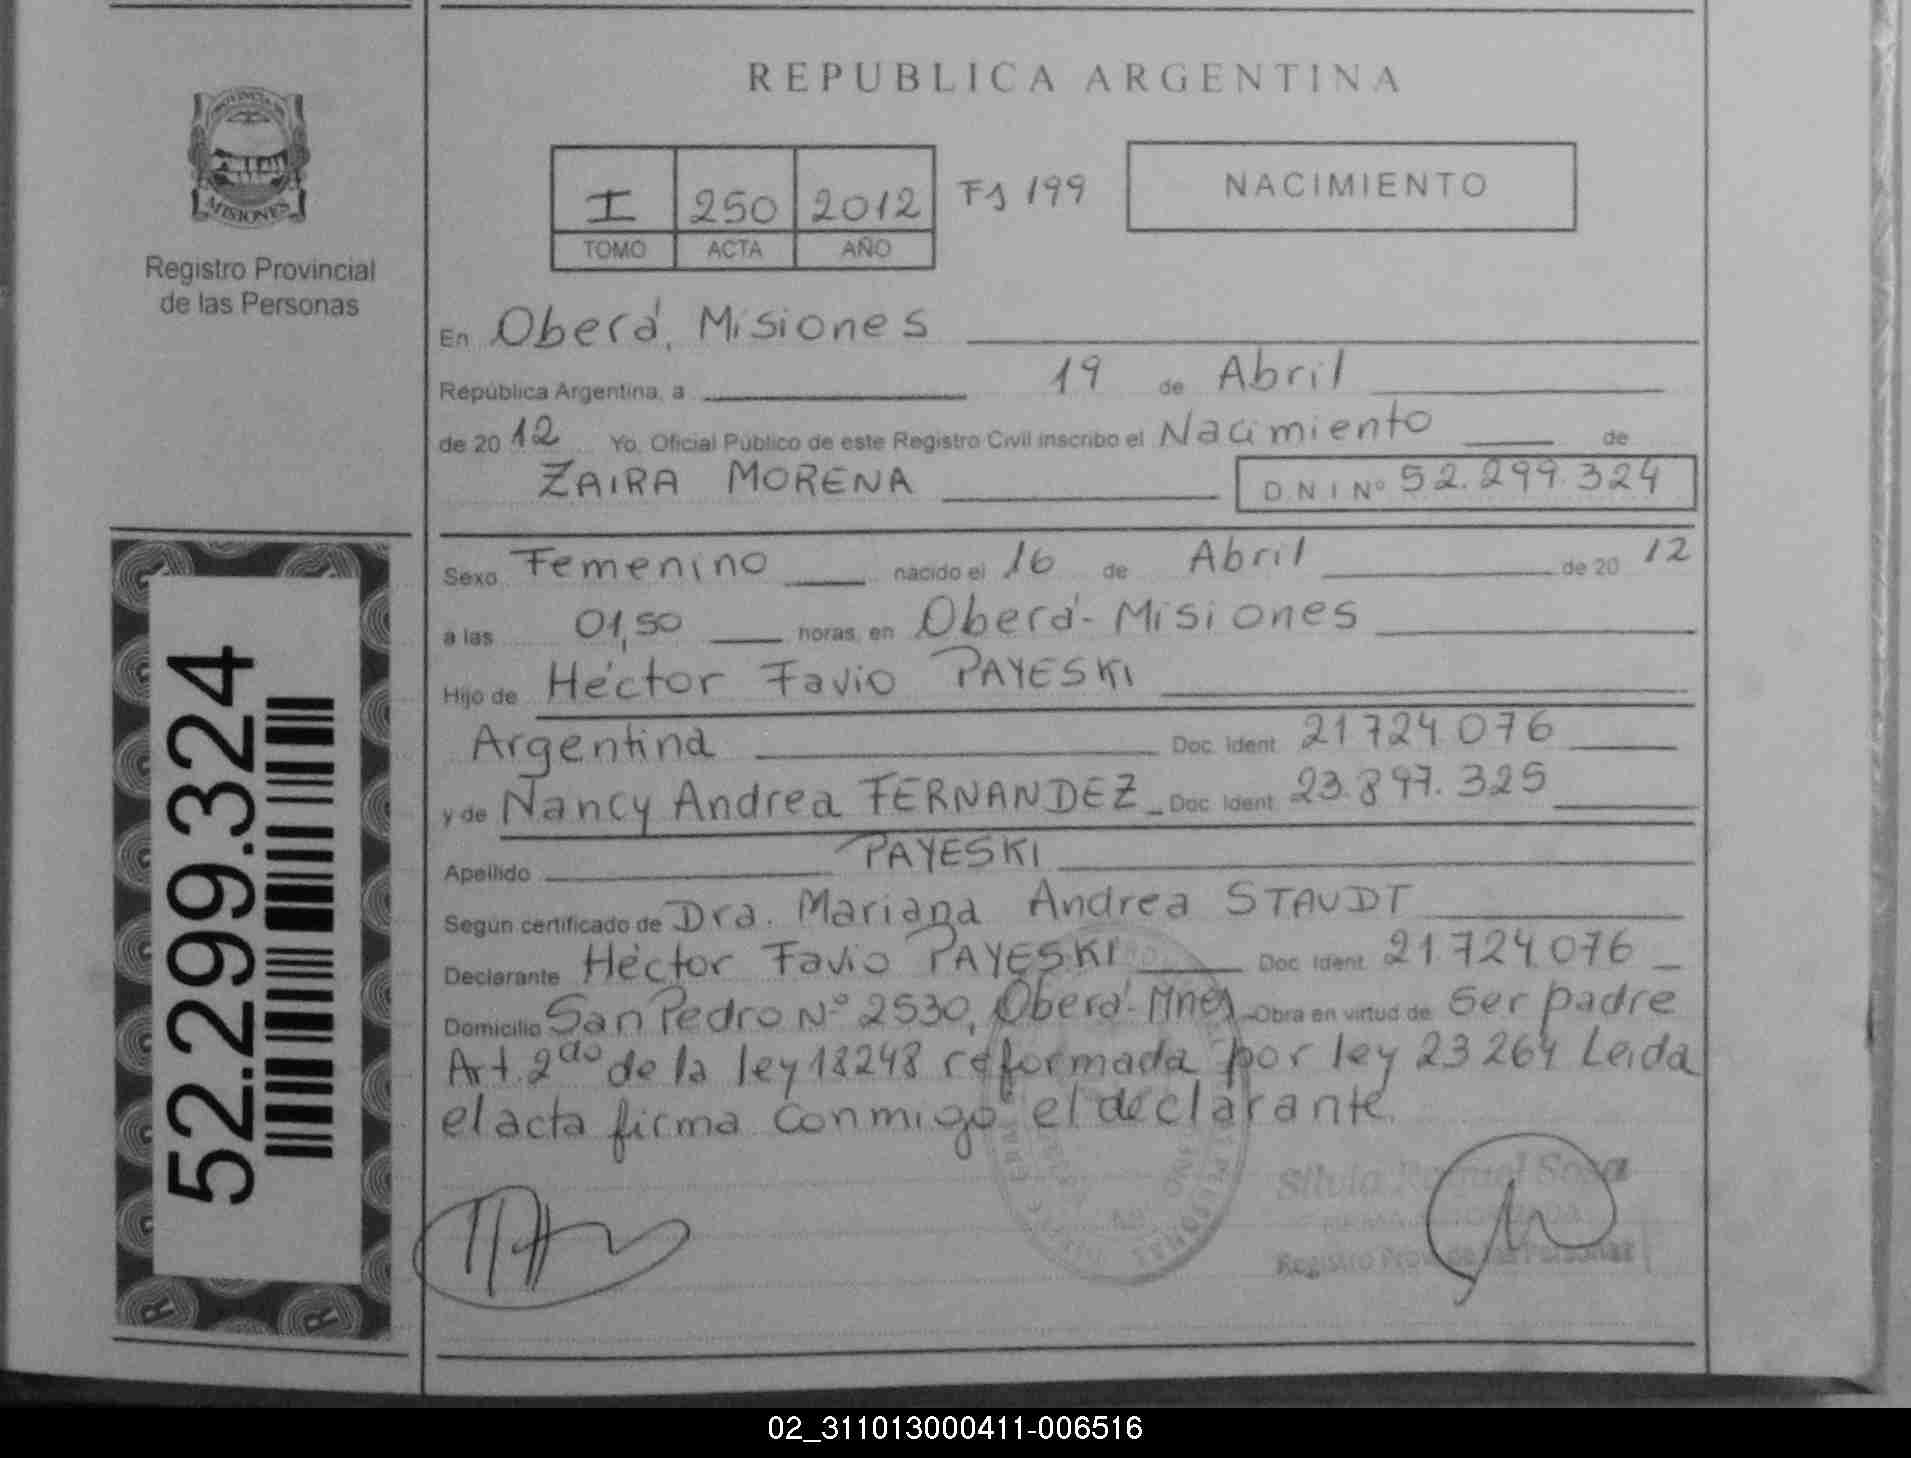 PROVINCIA DE
MISIONES
Registro Provincial
de las Personas
REPUBLICA ARGENTINA
I 250 2012 Fs 199 NACIMIENTO
TOMO ACTA AÑO
En Oberá, Misiones
República Argentina, a 19 de Abril
de 20 12 Yo, Oficial Público de este Registro Civil inscribo el Nacimiento de
ZAIRA MORENA DNI Nº 52.299.324
Sexo Femenino nacido el 16 de Abril de 20 12
a las 01,50 horas, en Oberá - Misiones
Hijo de Héctor Favio PAYESKI
Argentina Doc. Ident. 21724.076
y de Nancy Andrea FERNANDEZ Doc. Ident. 23.897.325
Apellido PAYESKI
Según certificado de Dra. Mariana Andrea STAUDT
Declarante Héctor Favio PAYESKI Doc. Ident. 21.724.076
Domicilio San Pedro Nº 2530, Oberá - Mnes Obra en virtud de Ser padre
Art. 2do de la ley 18248 reformada por ley 23264 Leida
el acta firma conmigo el declarante.
Registro Prov. de las Personas
52.299.324
R R
02_311013000411-006516